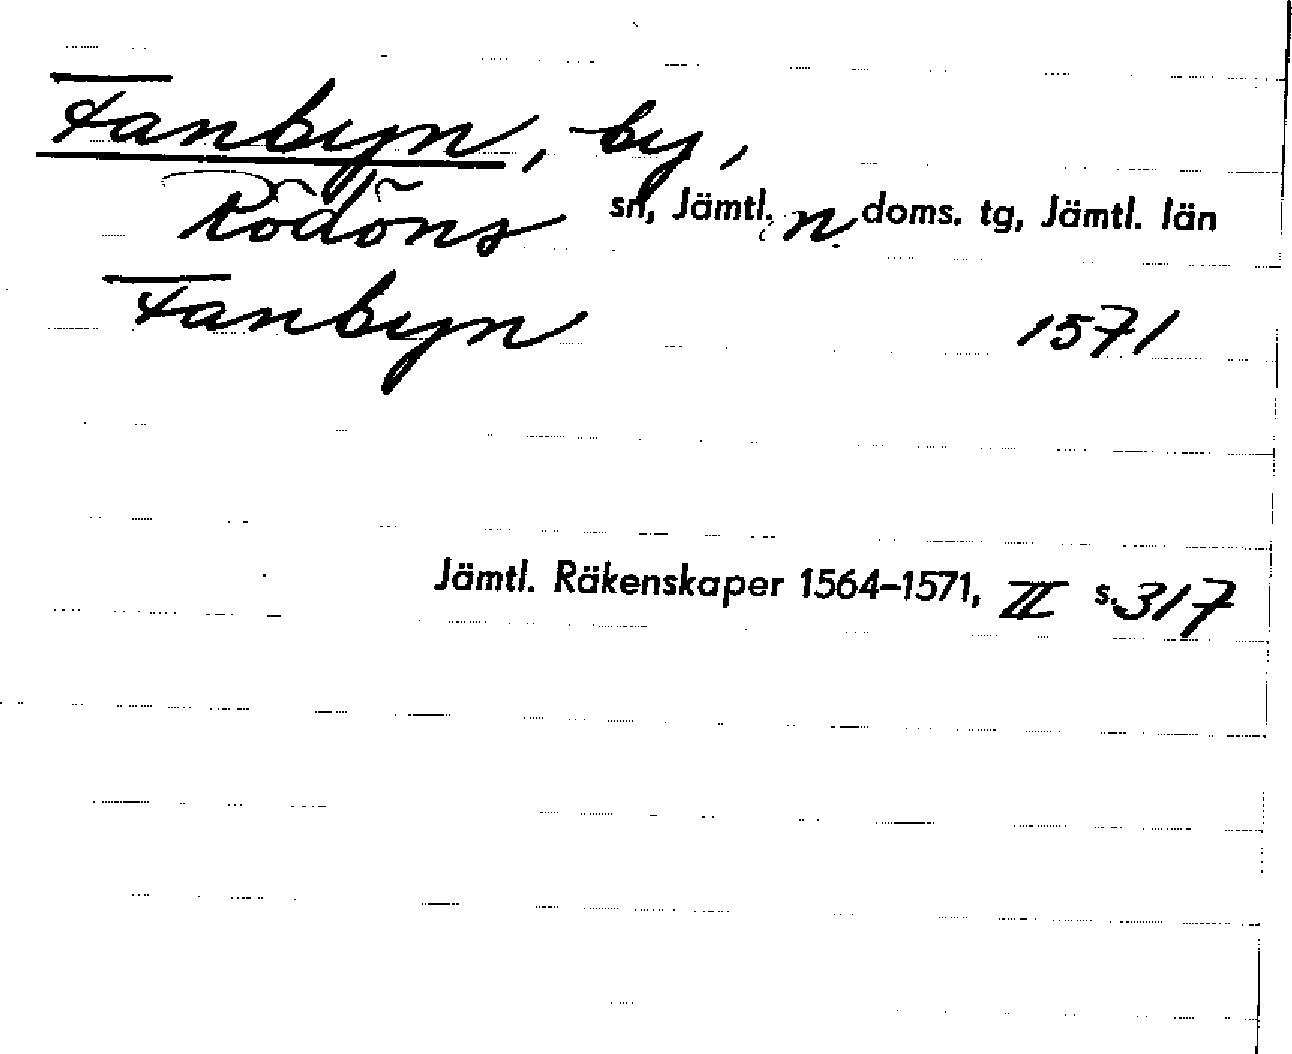 Fanbyn, by,
Rödöns sn, Jämtl. n. doms. tg, Jämtl. län
Fanbyn 1571
Jämtl. Räkenskaper 1564–1571, II s. 317